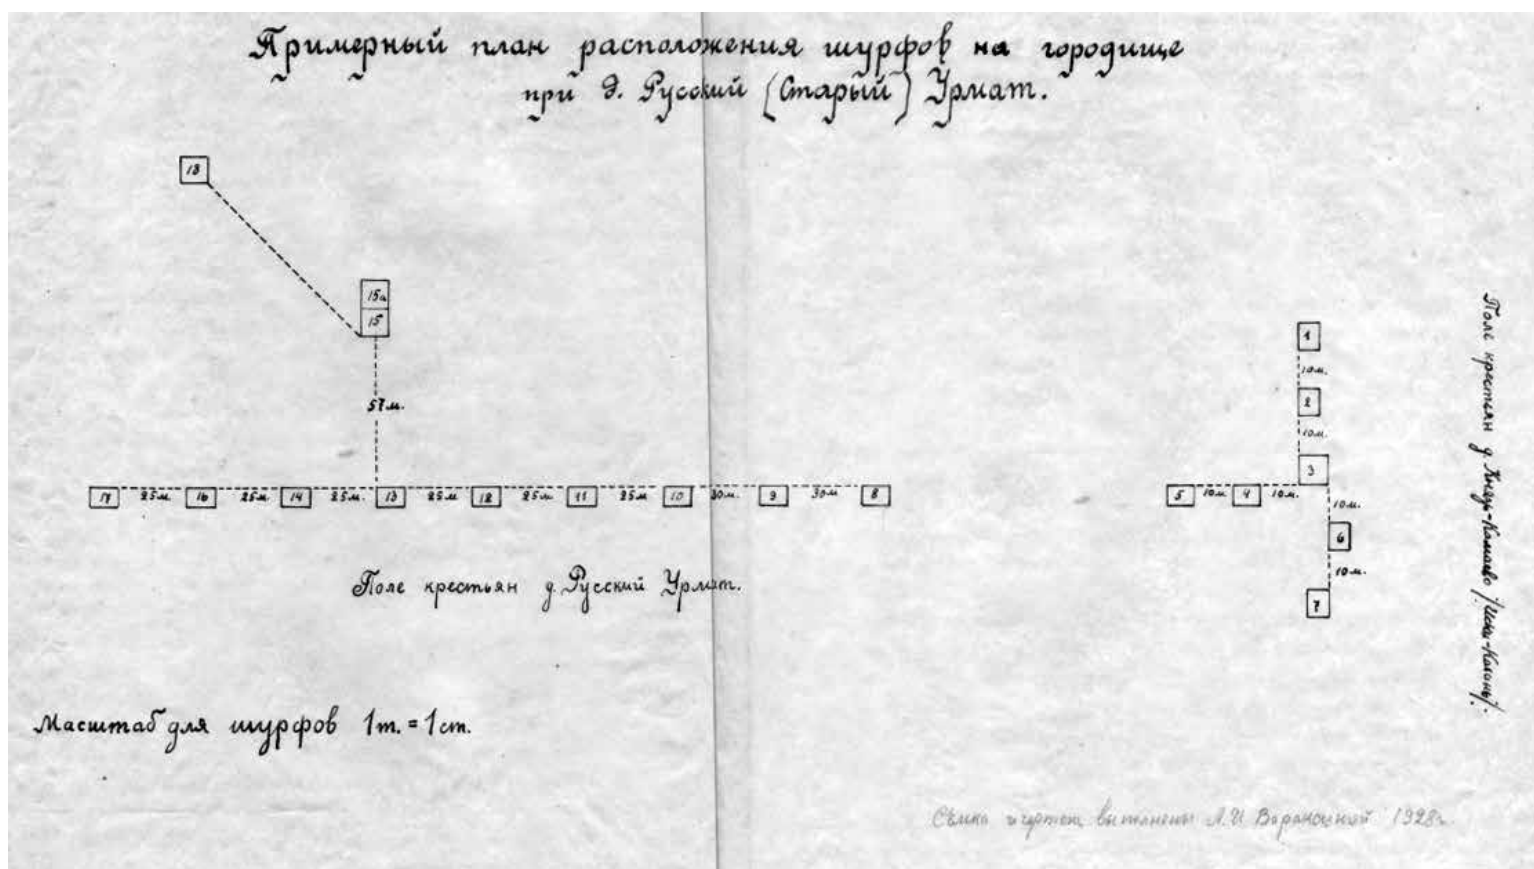 Примерный план расположения шурфов на городище
при д. Русский (Старый) Урмат.
18
15а
15
57 м.
17 25 м. 16 25 м. 14 25 м. 13 25 м. 12 25 м. 11 25 м. 10 30 м. 9 30 м. 8
1
10 м.
2
10 м.
3
5 10 м. 4 10 м.
10 м.
6
10 м.
7
Поле крестьян д. Русский Урмат.
Поле крестьян д. Князь-Камаево /Иски-Казань/.
Масштаб для шурфов 1m. = 1cm.
Съемка и чертеж выполнены 1928г.